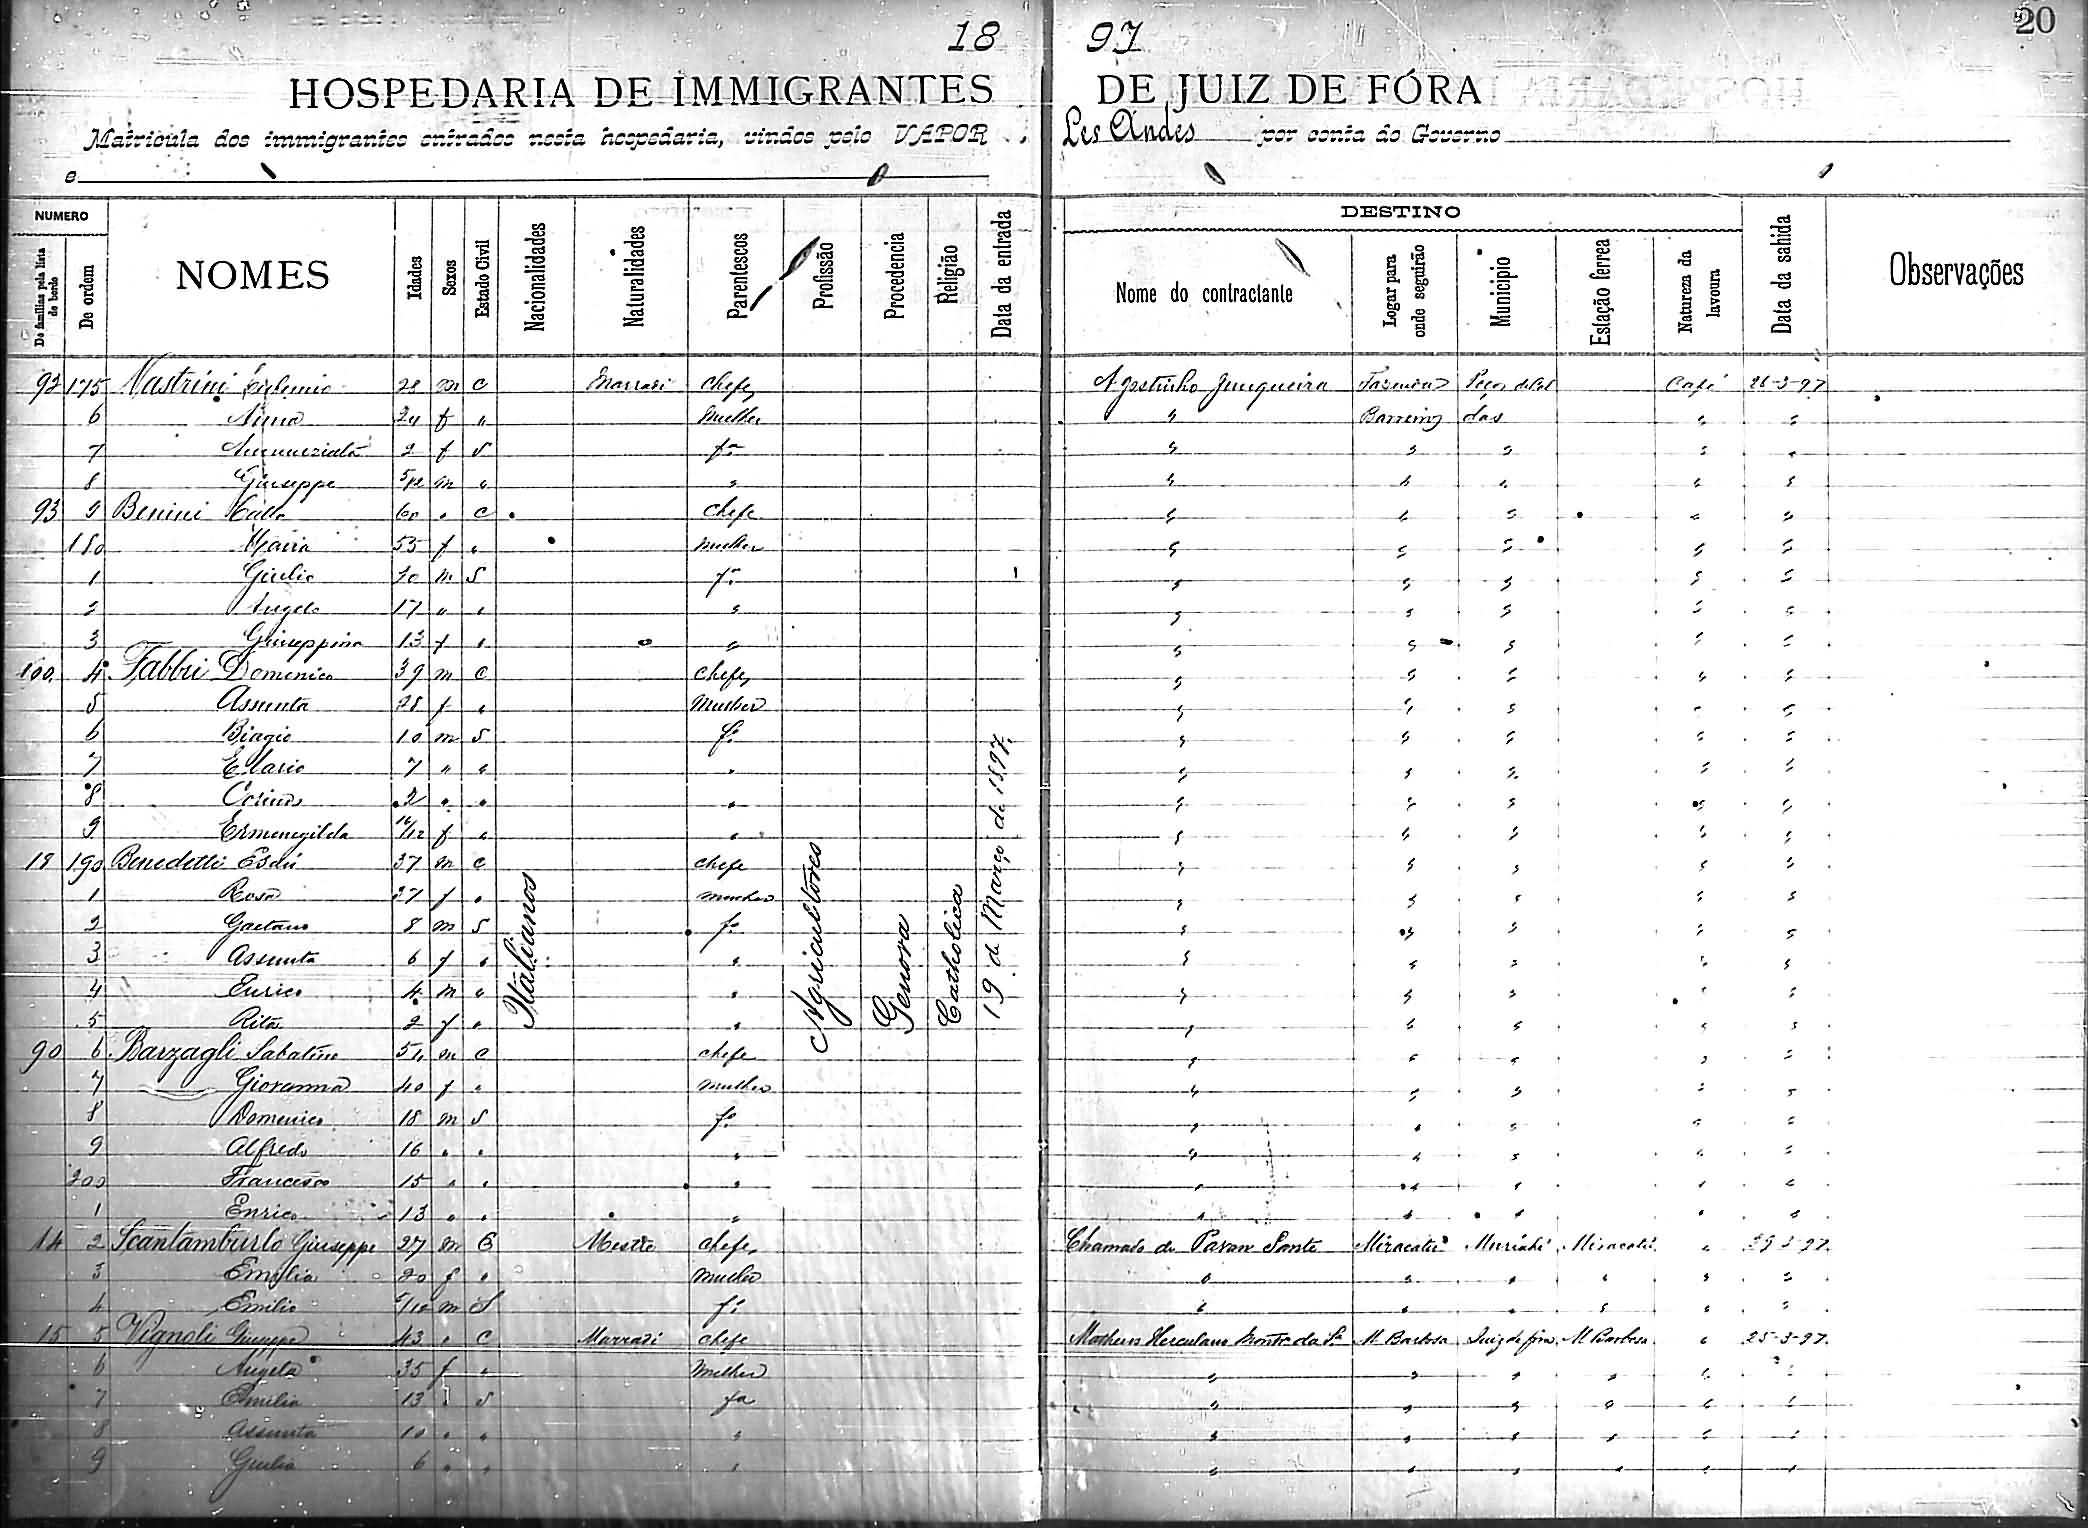 20
18 97
HOSPEDARIA DE IMMIGRANTES DE JUIZ DE FÓRA
Matricula dos immigrantes entrados nesta hospedaria, vindos pelo VAPOR Les Andes por conta do Governo
e
NUMERO
De familias pela lista de bordo
De ordem
NOMES
Idades
Sexos
Estado Civil
Nacionalidades
Naturalidades
Parentescos
Profissão
Procedencia
Religião
Data da entrada
DESTINO
Nome do contractante
Logar para onde seguirão
Municipio
Estação ferrea
Natureza da lavoura
Data da sahida
Observações
Italianos
Agricultores
Genova
Catholica
19 de Março de 1897
92 175 m C Marradi Chefe Junqueira Fazenda Café 26-3-97
6 24 f " Mulher " das " "
7 2 f S fa " " " " "
8 Giuseppe 5/12 m " " " " " " "
93 9 Benini 60 " C Chefe " " " " "
180 Maria 55 f " Mulher " " " " "
1 Giulio m S fo " " " " "
2 Angelo 17 " " " " " " " "
3 Giuseppina 13 f " " " " " " "
100 4 Fabbri Domenico 39 m C Chefe " " " " "
5 Assunta 28 f " Mulher " " " " "
6 Biagio 10 m S fo " " " " "
7 Elario 7 " " " " " " " "
8 2 " " " " " " " "
9 Ermenegilda f " " " " " " "
18 190 Benedetti 37 m C Chefe " " " " "
1 Rosa 37 f " Mulher " " " " "
2 Gaetano 8 m S fo " " " " "
3 Assunta 6 f " " " " " " "
4 Enrico 4 m " " " " " " "
5 Rita 2 f " " " " " " "
90 6 Barzagli Sabatino 54 m C Chefe " " " " "
7 Giovanna 40 f " Mulher " " " " "
8 Domenico 18 m S fo " " " " "
9 Alfredo 16 " " " " " " " "
200 Francisco 15 " " " " " " " "
1 Enrico 13 " " " " " " " "
14 2 Scantamburlo Giuseppe 27 m C Mestre Chefe Chamado de Pavan Sante Miracatú Muriahé Miracatú "
3 Emilia 20 f " Mulher " " " " " "
4 Emilio m S fo " " " " " "
15 5 Vignoli Giuseppe 43 " C Marradi Chefe Matheus Herculano Monto da Sa M Barbosa Juiz de fora M Barbosa " 25-3-97
6 Angela 35 f " Mulher " " " " " "
7 Emilia 13 " S fa " " " " " "
8 Assunta 10 " " " " " " " " "
9 Giulia 6 " " " " " " " " "